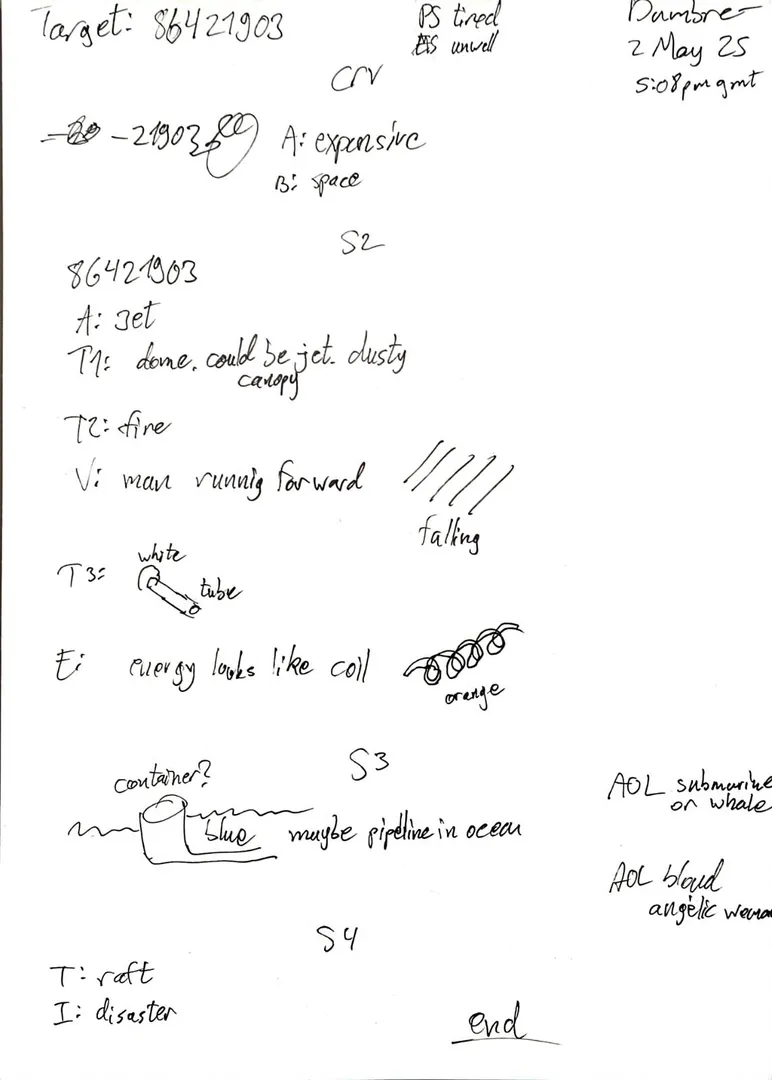 Target: 86421903
PS tired
ES unwell
Dumbre
2 May 25
5:08pm gmt
CRV
-21903
A: expensive
B: space
S2
86421903
A: Jet
T1: dome. could be jet. dusty
canopy
T2: fire
V: man runnig forward
falling
T3:
white
tube
E: energy looks like coil
orange
S3
container?
AOL submarine
or whale
blue maybe pipeline in ocean
AOL bloud
angelic woman
S4
T: raft
I: disaster
end